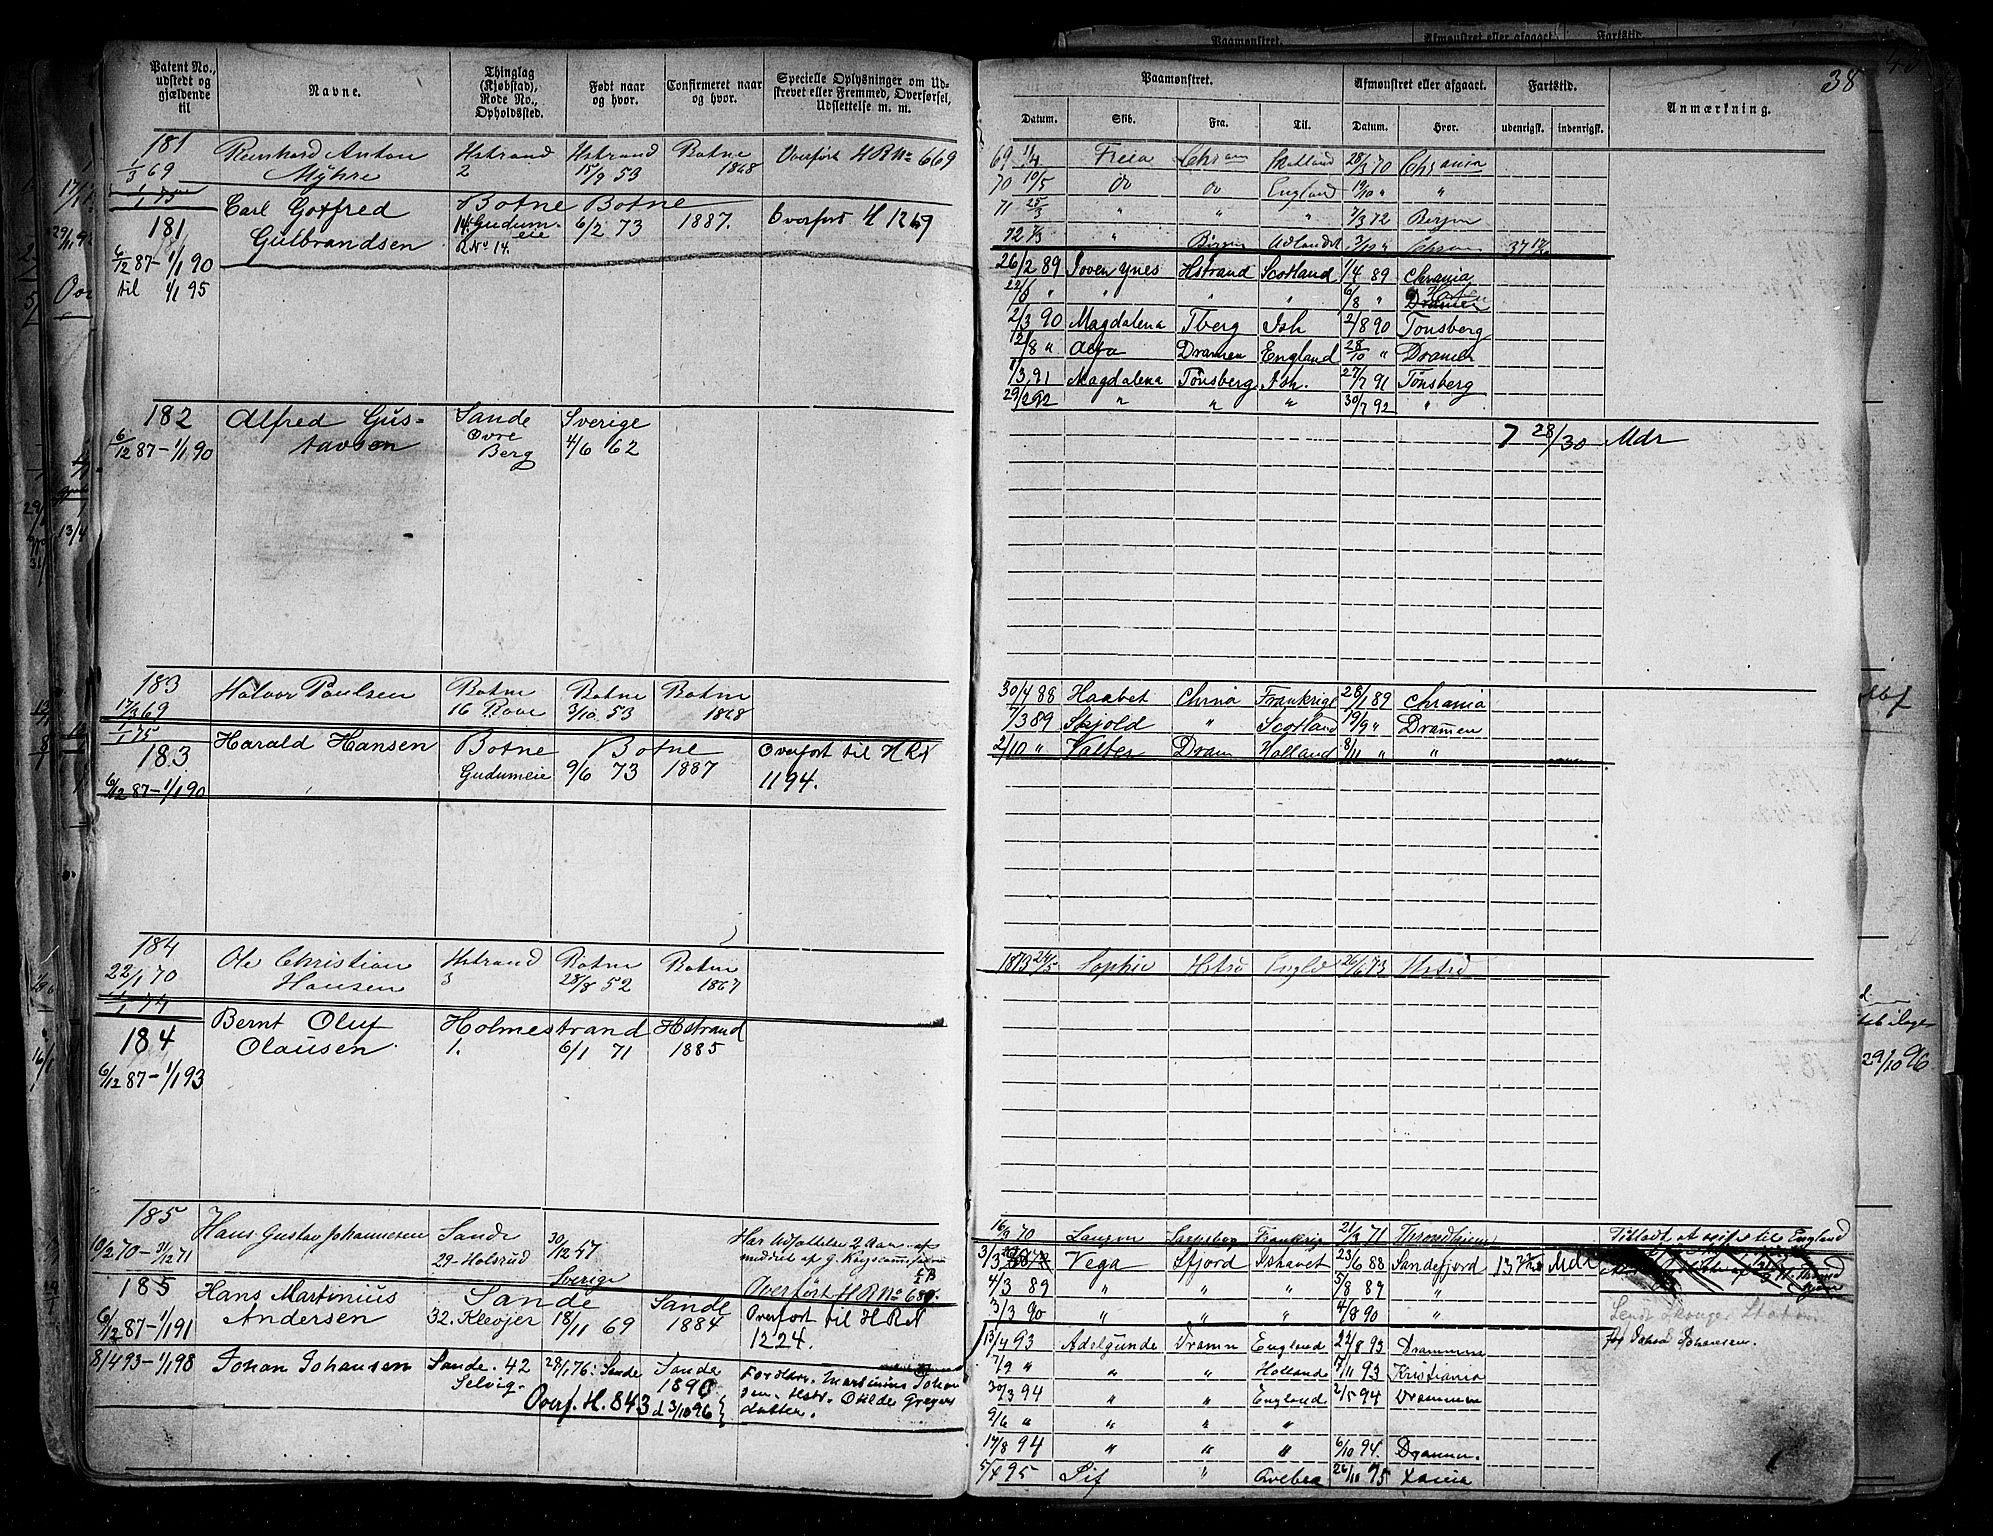 Patent No., udstedt og gjældende til
Navne.
Thinglag (Kjøbstad), Rode No., Opholdssted.
Født naar og hvor.
Confirmeret naar og hvor.
Specielle Oplysninger om Udskrevet eller Fremmed, Overførsel, Udslettelse m. m.
181
1/3 69
1/1 75
Reinhard Anton
Myhre
Hstrand
2
Hstrand
15/9 53
Botne
1868
Overført H R No 669
181
6/12 87 – 1/1 90
til 1/1 95
Carl Gotfred
Gulbrandsen
Botne
14. Gudum-
eie
R. No 14.
Botne
6/2 73
1887.
Overfort H 1269
182
6/12 87 – 1/1 90
Alfred Gus-
tavsen
Sande
Ovre
Berg
Sverige
4/6 62
183
17/3 69
1/1 75
Halvor Paulsen
Botne
16 Rove
Botne
3/10 53
Botne
1868
183
6/12 87 – 1/1 90
Harald Hansen
Botne
Gudumeie
Botne
9/6 73
1887
Overfort til H R N
1194.
184
22/1 70
1/1 74
Ole Christian
Hansen
Hstrand
3
Botne
28/8 52
Botne
1867
184
6/12 87 – 1/1 93
Bernt Oluf
Olausen
Holmestrand
1.
6/1 71
Hstrand
1885
185
10/2 70 – 31/12 71
Hans Gustav Johannesen
Sande
29 Holsrud
30/12 47
Sverige
Overført H R No 680.
185
6/12 87 – 1/1 91
Hans Martinius
Andersen
Sande
32. Klevjer
18/11 69
Sande
1884
Overfort til H R N
1224.
8/4 93 – 1/1 98
Johan Johansen
Sande. 42
Selvig.
29/1 76: Sande
Sande
1890
Overf. H. 843
d 3/10 96
Martinius Johan
38
Paamønstret.
Afmønstret eller afgaaet.
Fartstid.
Anmærkning.
Datum.
Skib.
Fra.
Til.
Datum.
Hvor.
udenrigsk.
indenrigsk.
69 11/4 Freia Chrania 28/3 70 Chrania
70 10/5 do do England 19/10 " "
71 25/3 " " " 7/3 72 Bergen
72 7/3 " Bergen Udlandet
26/2 89 Hstrand Scotland 1/4 89 Chrania
22/6 " " " " 6/8 " Dramen
2/3 90 Magdalena Tberg Ish 2/8 90 Tonsberg
12/8 " Alfa Dramen England 28/10 " Dramen
1/3 91 Magdalena Tønsberg Ish. 27/7 91 Tønsberg
29/2 92 " " " 30/7 92 "
7 28/30 Mdr
30/4 88 Haabet Chrnia Frankrige 28/1 89 Chrania
7/3 89 Skjold " Scotland 19/9 " Dramen
2/10 " Valber Dram Holland 8/11 " "
1873 24/5 Sophie Hstrd Engld 26/6 73 Hstrd
16/9 70 Frankrig 21/3 71 Throndhjem Tilladt at reise til England
3/3 Vega Sfjord Ishavet 23/6 88 Sandefjord 13 Mdr
4/3 89 " " " 5/8 89 "
3/3 90 " " " 4/8 90 "
13/4 93 Adelgunde Dramn England 22/8 93 Drammen
7/9 " " " Holland 17/11 93 Kristiania
30/3 94 " " England 2/5 94 Drammen
9/6 " " " "
17/8 94 " " " 6/10 94 Drammen.
5/4 95 Sif " 26/10 95
Johan Johansen.
29/10 96